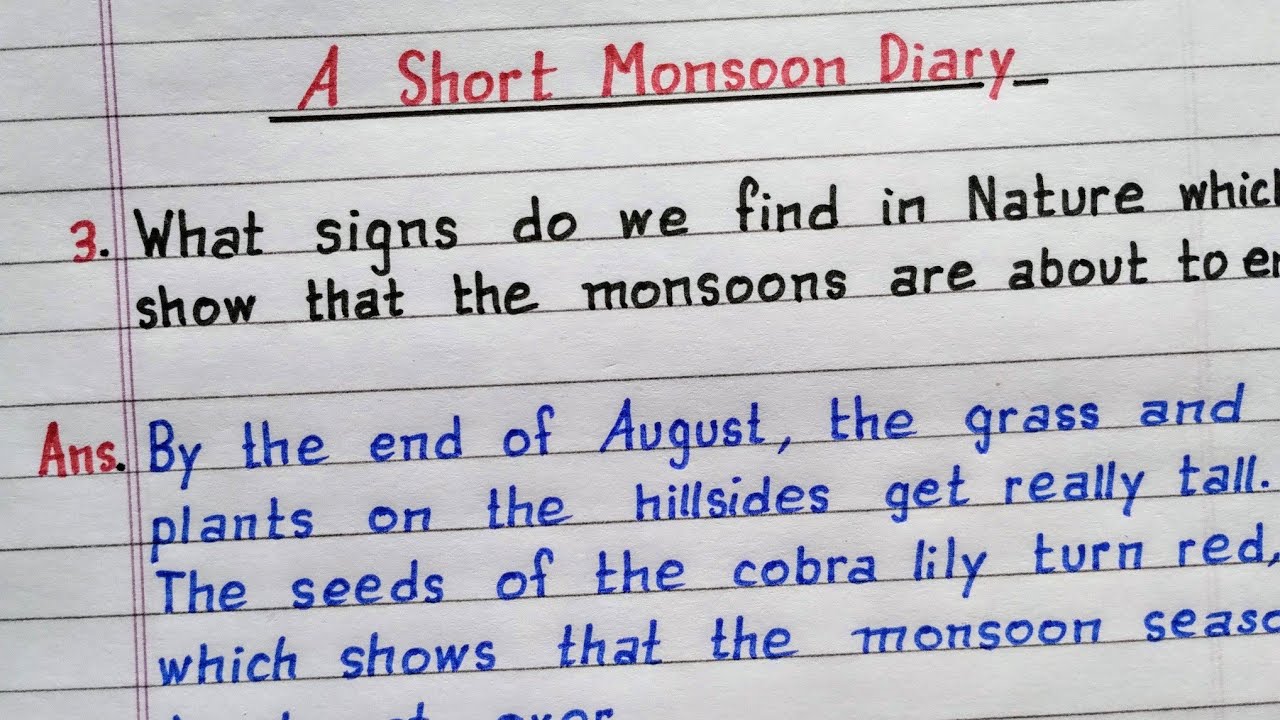 A Short Monsoon Diary
3. What signs do we find in Nature which
show that the monsoons are about to en
Ans. By the end of August, the grass and
plants on the hillsides get really tall.
The seeds of the cobra lily turn red,
which shows that the monsoon seaso
over